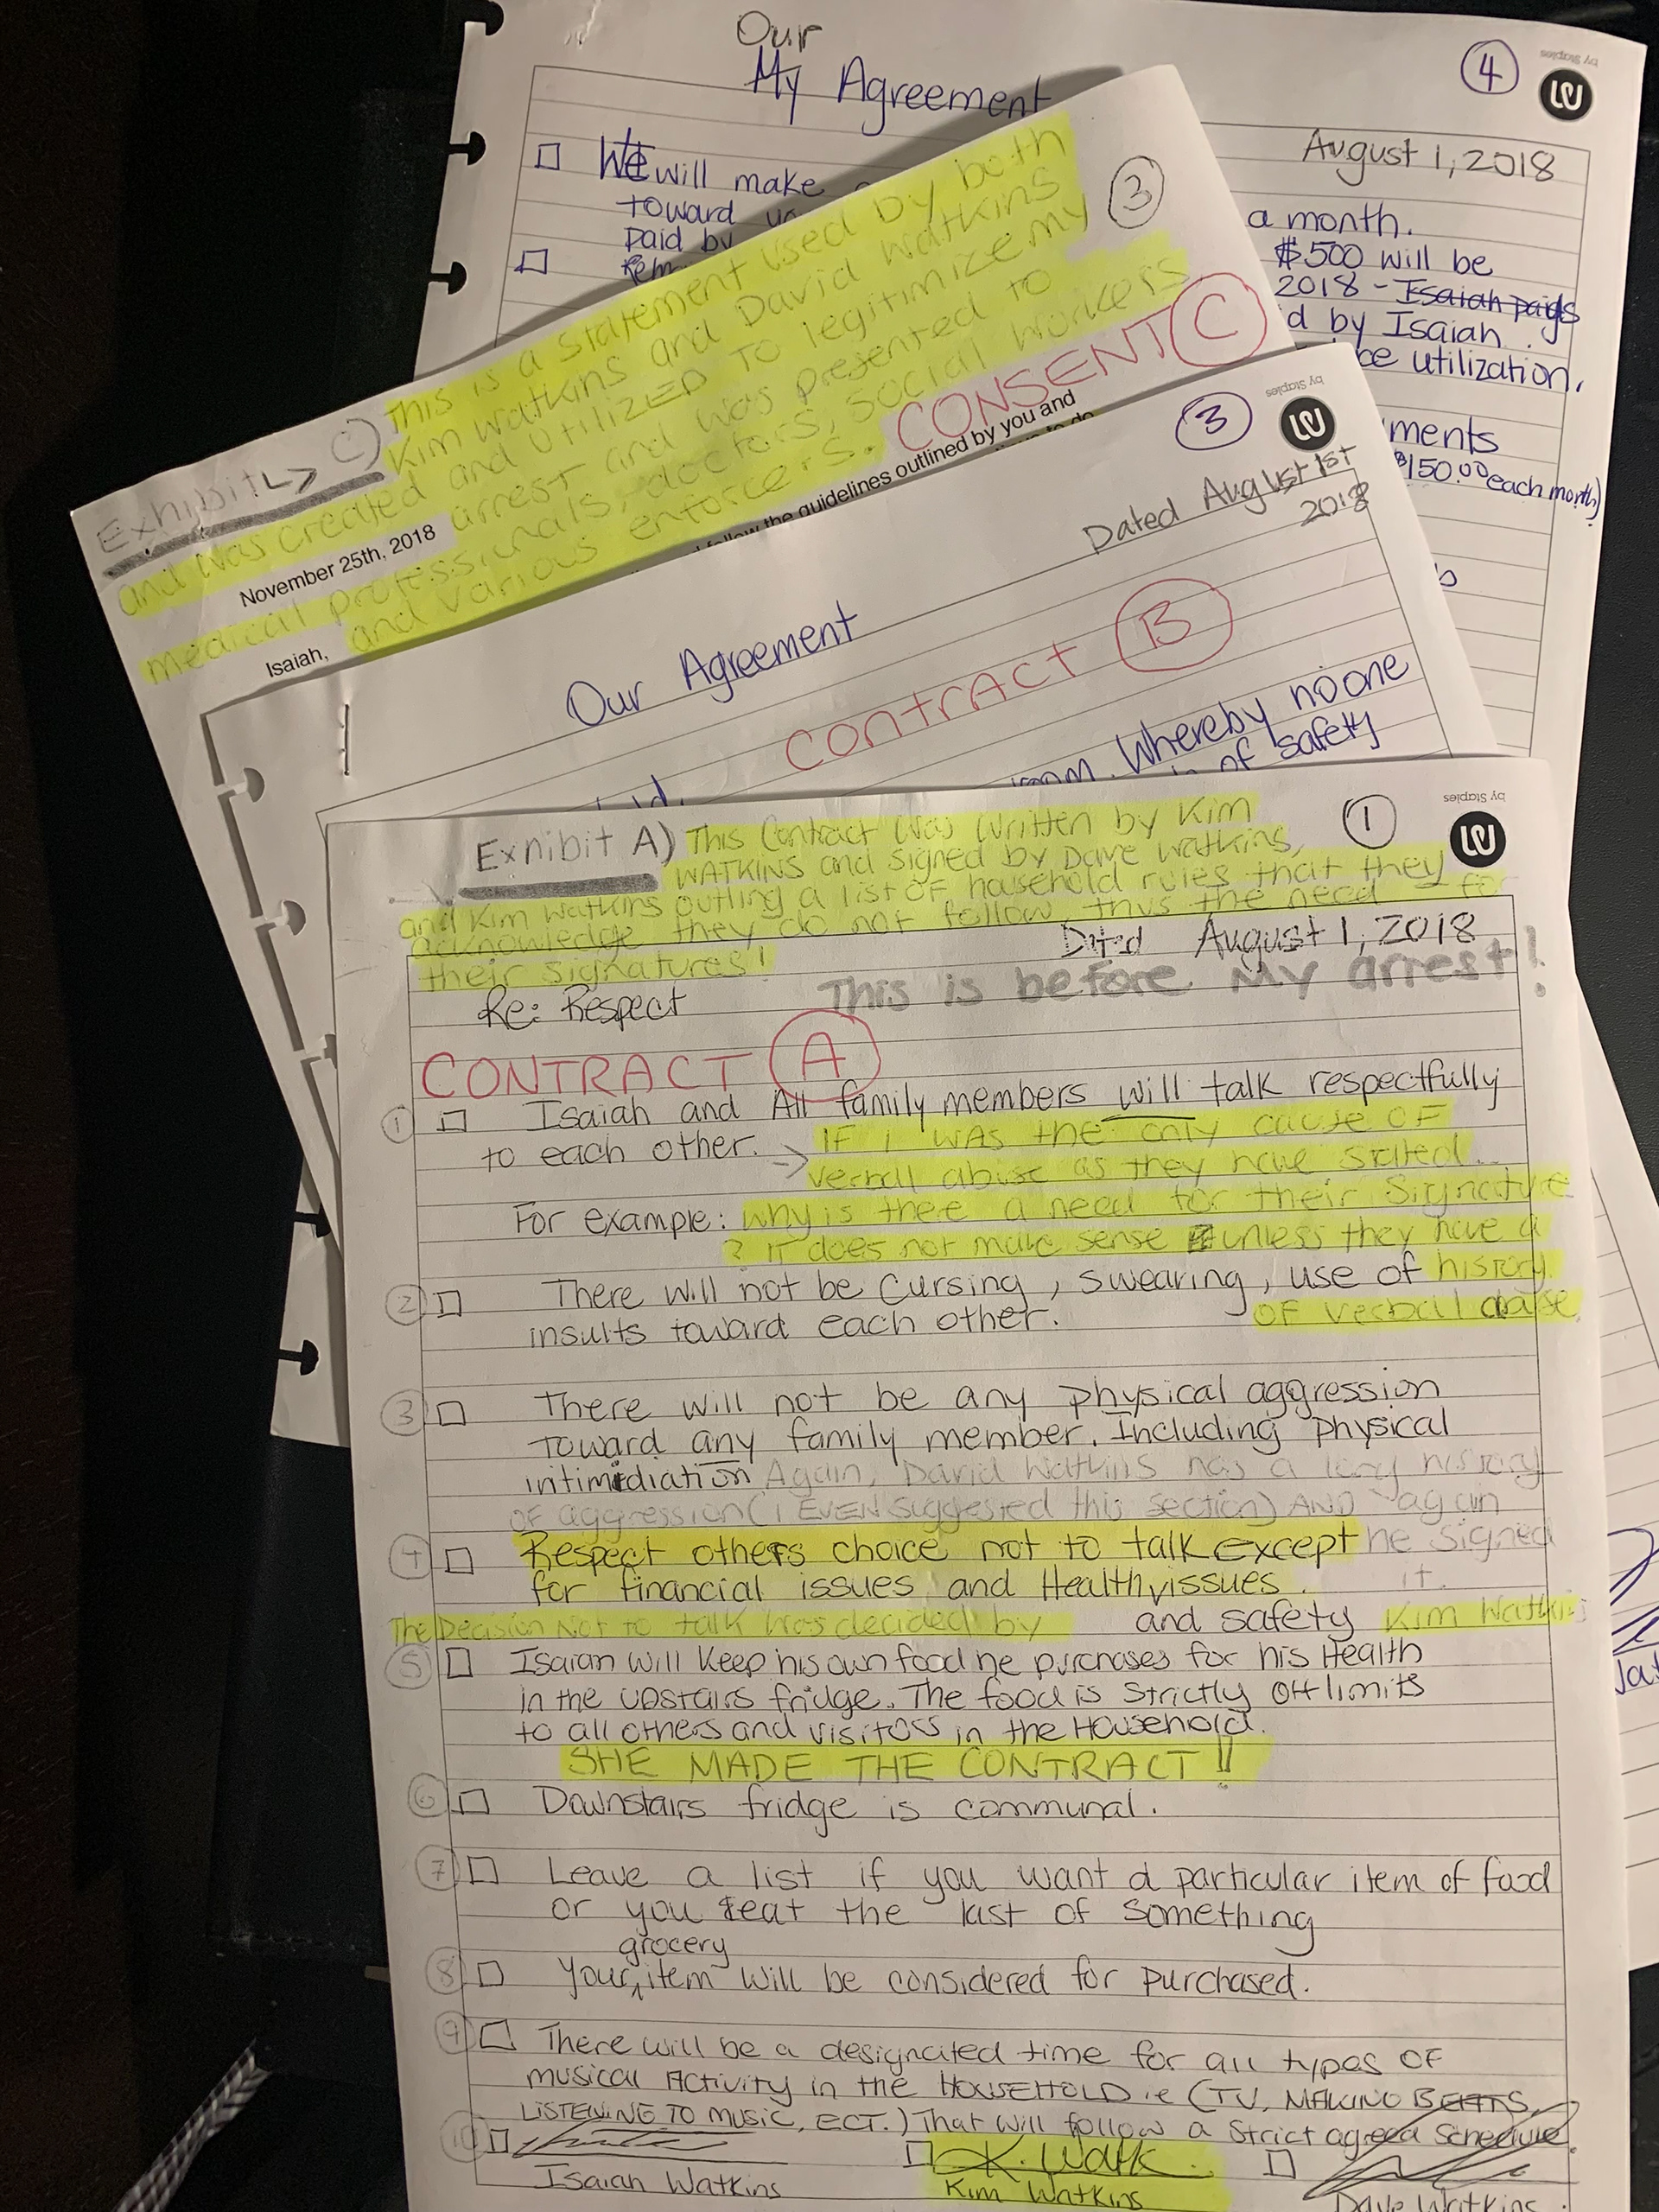 Our
My Agreement
4
by Staples
August 1, 2018
We will make
toward
a month.
paid by
$500 will be
2018 - Isaiah pays
d by Isaiah.
be utilization.
ments
$150.00 each month)
3
Exhibit C) This is a statement used by both
Kim Watkins and David Watkins
and was created and UTILIZED TO legitimize my
November 25th, 2018 arrest and was presented to
medical professionals, doctors, social workers
and various enforcers. CONSENT C
Isaiah,
follow the guidelines outlined by you and
3
by Staples
Dated August 1st
2018
Our Agreement
CONTRACT B
Whereby no one
of safety
1
by Staples
Exhibit A) This Contract was written by Kim
WATKINS and signed by Dave Watkins,
and Kim Watkins outling a list OF household rules that they
acknowledge they do not follow, thus the need for
their signatures!
Dated August 1, 2018
Re: Respect
This is before My arrest!
CONTRACT A
1 Isaiah and All family members will talk respectfully
to each other. → IF I WAS the only cause OF
verbal abuse as they have stated..
For example: why is there a need for their Signature
? IT does not make sense unless they have a
2 There will not be cursing, swearing, use of history
insults toward each other. OF verbal abuse
3 There will not be any physical aggression
toward any family member. Including physical
intimidiation Again, David Watkins has a long history
OF aggression (I EVEN suggested this section) AND again
4 Respect others choice not to talk except he signed
for financial issues and Health issues. it.
The Decision Not to talk was decided by and safety Kim Watkins
5 Isaiah will keep his own food he purchases for his Health
in the upstairs fridge. The food is strictly off limits
to all others and visitors in the Household.
SHE MADE THE CONTRACT!!
6 Downstairs fridge is communal.
7 Leave a list if you want a particular item of food
or you eat the last of something
grocery
8 Your item will be considered for purchased.
9 There will be a designated time for all types OF
musical Activity in the HOUSEHOLD ie (TV, MAKING BEATS,
LISTENING TO MUSIC, ECT.) That will follow a Strict agreed Schedule.
10 K. Watk
Isaiah Watkins Kim Watkins Dave Watkins